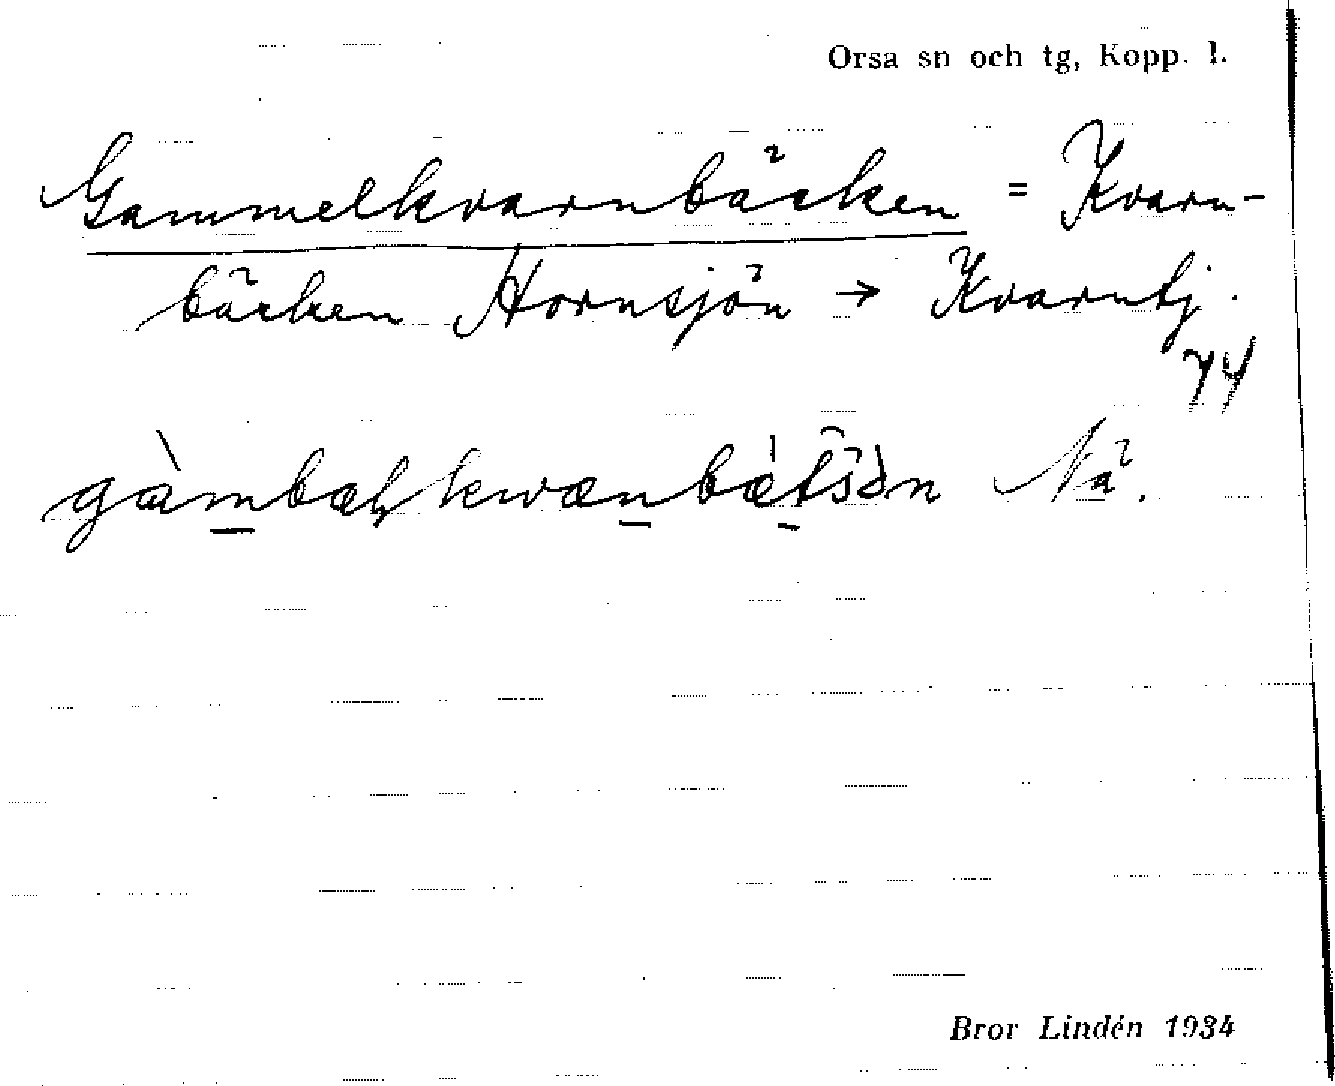 Orsa sn och tg, Kopp. l.
Gammelkvarnbäcken = Kvarn-
bäcken Hornsjön → Kvarntj.
74
gàmbaļkwænbätsən Nä.
Bror Lindén 1934